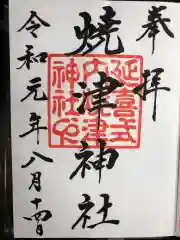 奉拝
焼津神社
延喜式
内大津
神社
令和元年八月十四日